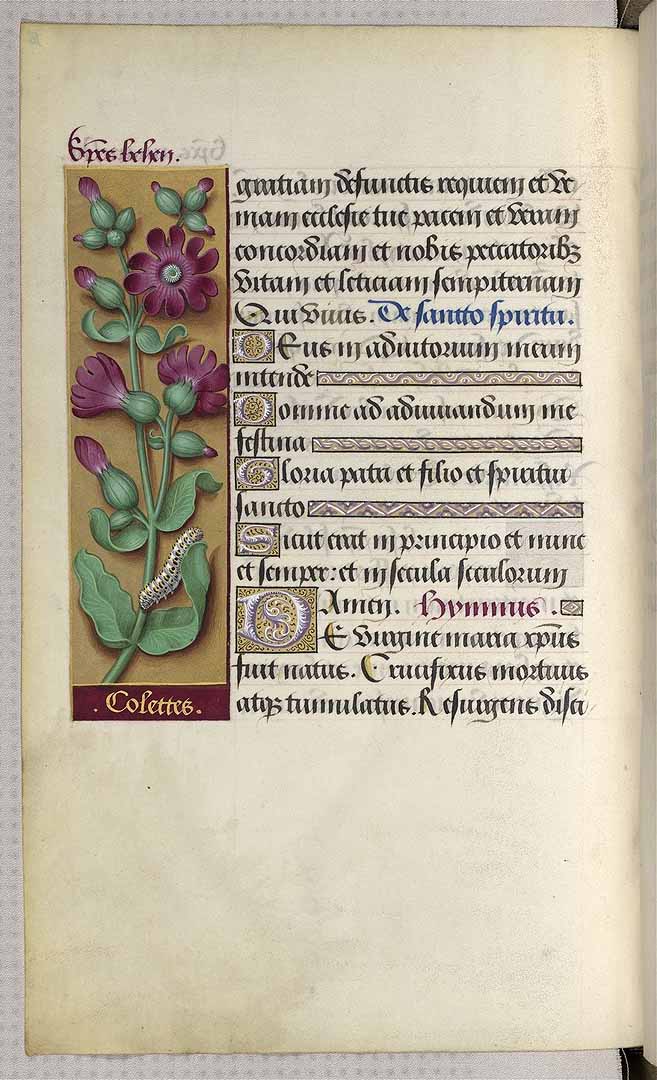 Spēs behen.
gratiam defunctis requiem et ve
niam ecclesie tue pacem et veram
concordiam et nobis peccatoribꝫ
vitam et leticiam sempiternam
Qui vivis. De sancto spiritu.
Deus in adiutorium meum
intende
Domine ad adiuuandum me
festina
Gloria patri et filio et spiritui
sancto
Sicut erat in principio et nunc
et semper: et in secula seculorum
Amen. Hymnus.
DE virgine maria xp̄us
fuit natus. Crucifixus mortuus
atqꝫ tumulatus. Resurgens disci
. Colettes.